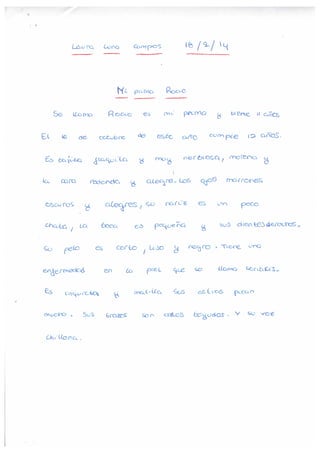 Laura Luna Campos 18/2/14
Mi prima Rocio
Se llama Rocio es mi prima y tiene 11 años
El 16 de octubre de este año cumple 12 años.
Es bajita y muy nerbiosa, morena y
la cara redonda y alegre. Los ojos marrones
oscuros y alegres, su nariz es un poco
chata, la boca es pequeña y sus dientes
Su pelo es corto, liso y negro. Tiene una
enfermedad en la piel que se llama
Es y sus
mucho. Sus brazos son algo Y su voz
chillona.